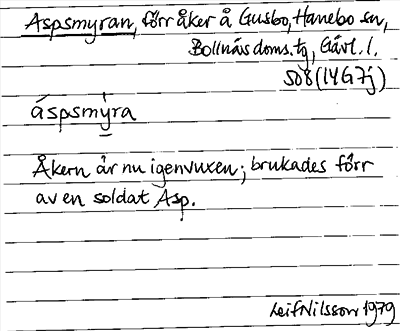 Aspsmyran, förr åker å Gusbo, Hanebo sn,
Bollnäs doms. tg, Gävl. l.
508 (14G7j)
áspsmỳra
Åkern är nu igenvuxen; brukades förr
av en soldat Asp.
Leif Nilsson 1979